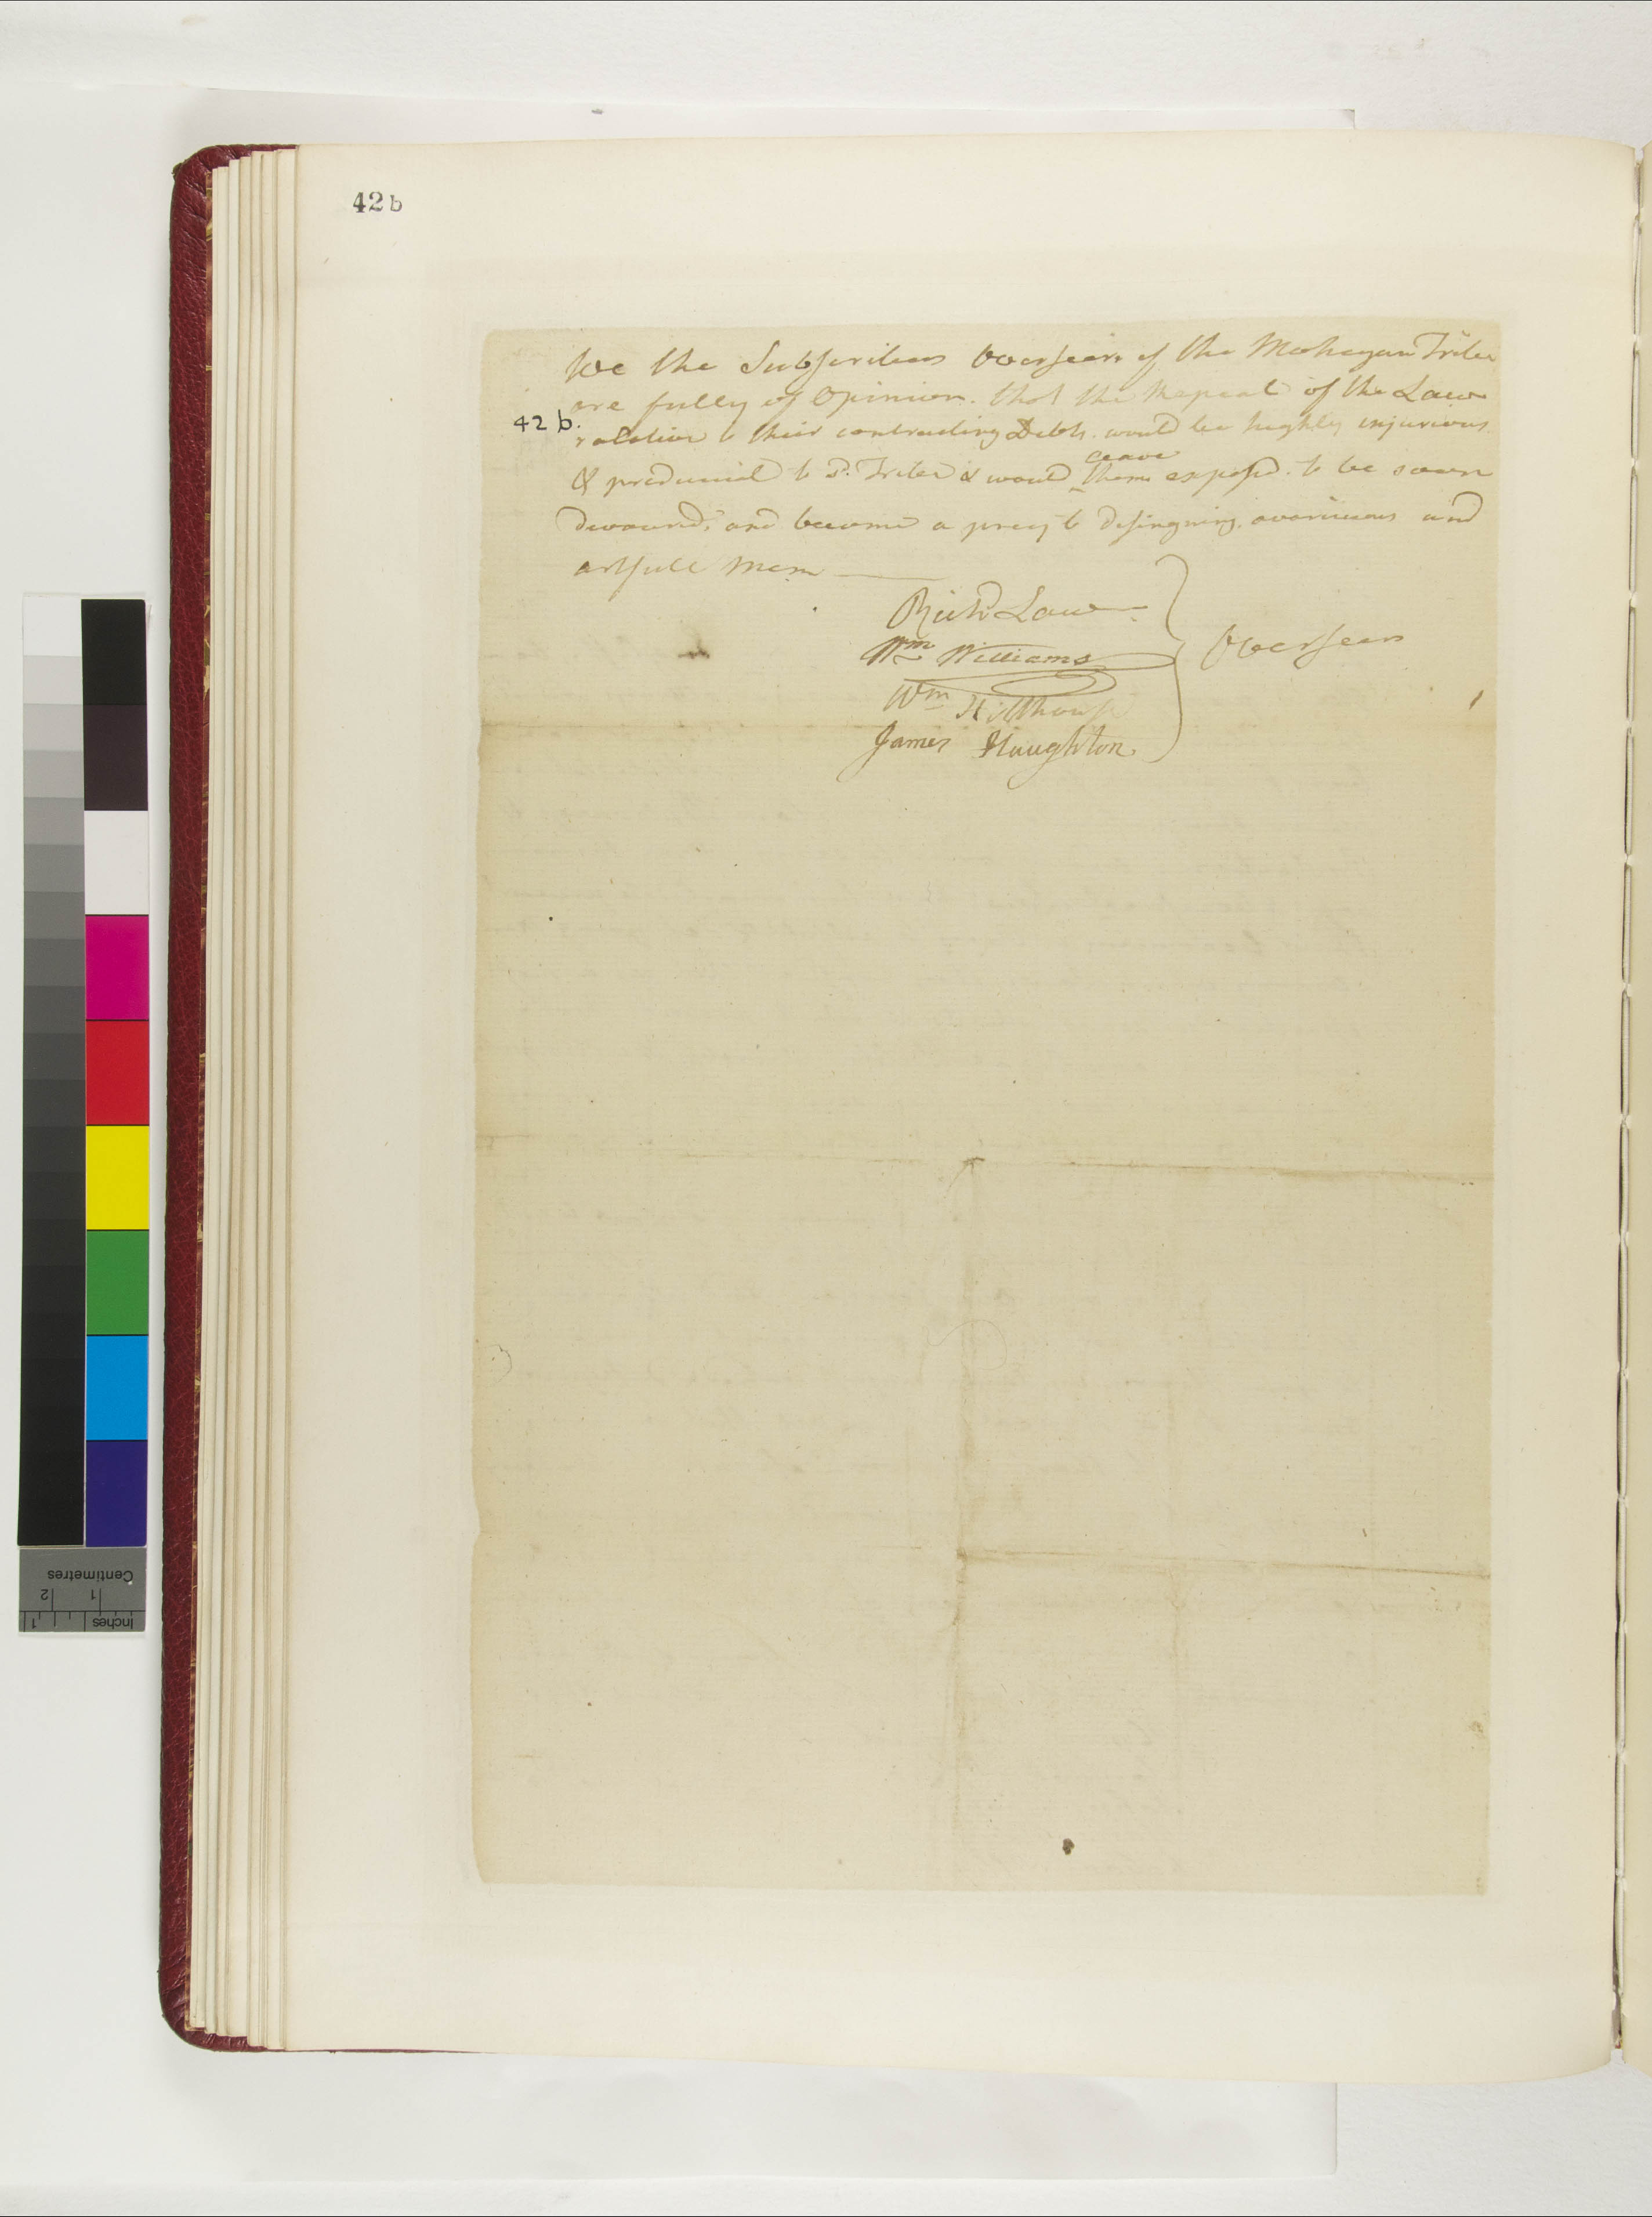 42b
We the Subscribers Overseers of the Mohegan Tribe
are fully of Opinion. that the Repeal of the Law
42 b.
relative to their contracting Debts. would be highly injurious
leave
& prudunial to sd. Tribe & would ‸ them exposd. to be soon
devourd, and become a prey to desingning. avaricious and
artfull Men
Richd Law
Wm Williams
Overseers
Wm Hillhouse
James Haughton
Centimetres
1 2
Inches
1